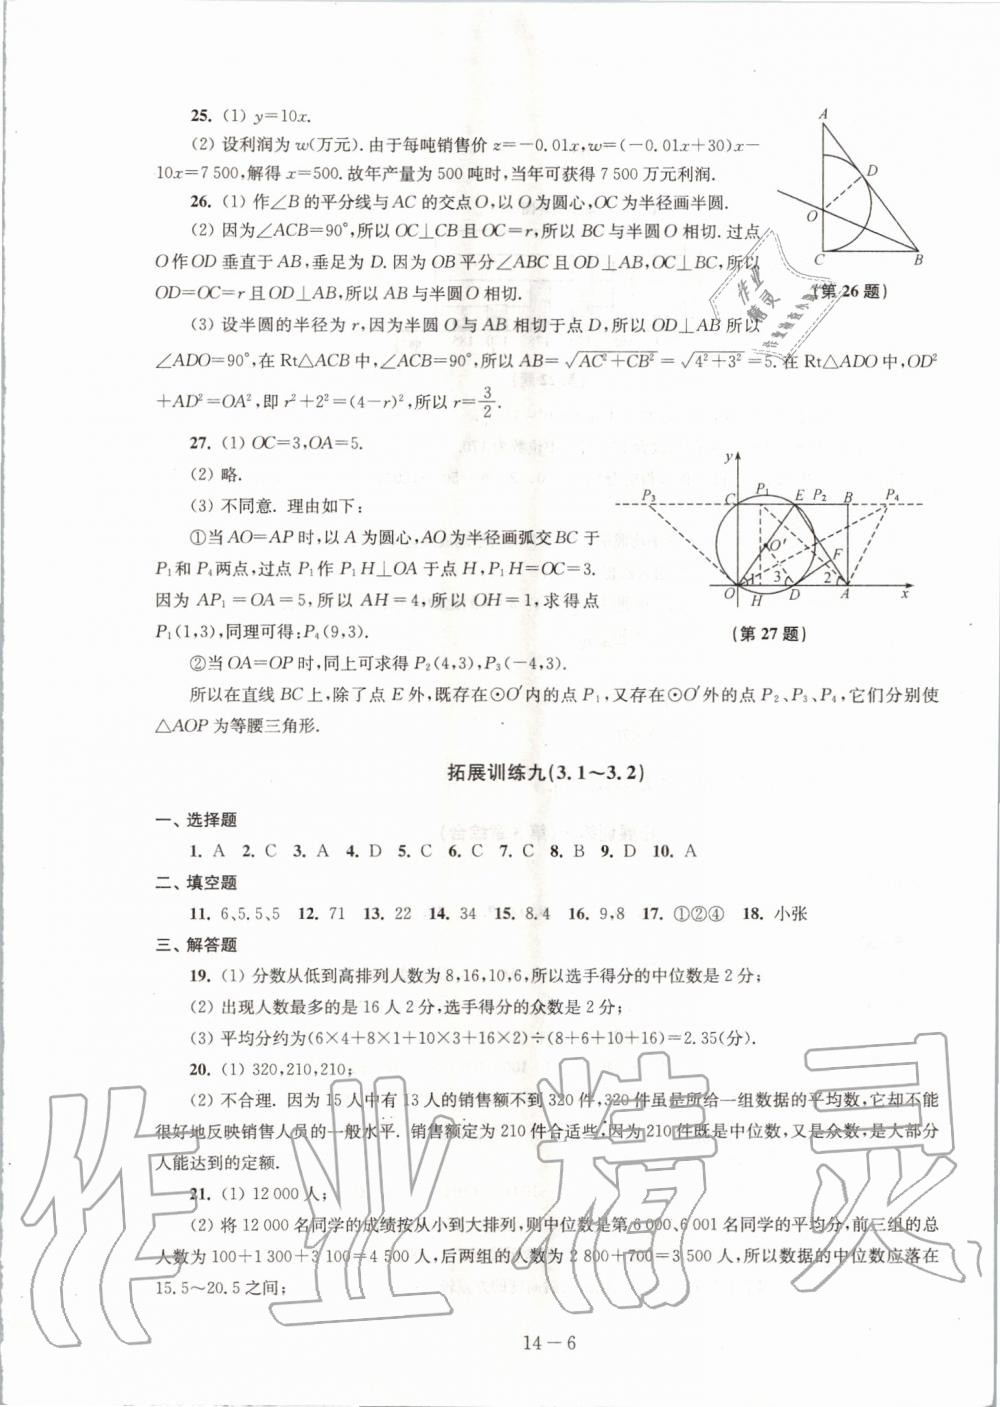 25. (1) y=10x.
(2) 设利润为 w(万元). 由于每吨销售价 z=-0.01x,w=(-0.01x+30)x-
10x=7 500,解得 x=500. 故年产量为 500 吨时,当年可获得 7 500 万元利润.
26. (1) 作∠B 的平分线与 AC 的交点 O,以 O 为圆心,OC 为半径画半圆.
(2) 因为∠ACB=90°,所以 OC⊥CB 且 OC=r,所以 BC 与半圆 O 相切. 过点
O 作 OD 垂直于 AB,垂足为 D. 因为 OB 平分∠ABC 且 OD⊥AB,OC⊥BC,所以
OD=OC=r 且 OD⊥AB,所以 AB 与半圆 O 相切.
A
D
O
C
B
(第 26 题)
(3) 设半圆的半径为 r,因为半圆 O 与 AB 相切于点 D,所以 OD⊥AB 所以
∠ADO=90°,在 Rt△ACB 中,∠ACB=90°,所以 AB=√(AC²+CB²)=√(4²+3²)=5. 在 Rt△ADO 中,OD²
+AD²=OA²,即 r²+2²=(4-r)²,所以 r=3/2.
27. (1) OC=3,OA=5.
(2) 略.
(3) 不同意. 理由如下:
①当 AO=AP 时,以 A 为圆心,AO 为半径画弧交 BC 于
P₁和 P₄两点,过点 P₁作 P₁H⊥OA 于点 H,P₁H=OC=3.
因为 AP₁=OA=5,所以 AH=4,所以 OH=1,求得点
P₁(1,3),同理可得:P₄(9,3).
y
P₃ C P₁ E P₂ B P₄
O′ F
1 3 2
O H D A x
(第 27 题)
②当 OA=OP 时,同上可求得 P₂(4,3),P₃(-4,3).
所以在直线 BC 上,除了点 E 外,既存在⊙O′内的点 P₁,又存在⊙O′外的点 P₂、P₃、P₄,它们分别使
△AOP 为等腰三角形.
拓展训练九(3.1～3.2)
一、选择题
1. A 2. C 3. A 4. D 5. C 6. C 7. C 8. B 9. D 10. A
二、填空题
11. 6、5.5、5 12. 71 13. 22 14. 34 15. 8.4 16. 9,8 17. ①②④ 18. 小张
三、解答题
19. (1) 分数从低到高排列人数为 8,16,10,6,所以选手得分的中位数是 2 分;
(2) 出现人数最多的是 16 人 2 分,选手得分的众数是 2 分;
(3) 平均分约为(6×4+8×1+10×3+16×2)÷(8+6+10+16)=2.35(分).
20. (1) 320,210,210;
(2) 不合理. 因为 15 人中有 13 人的销售额不到 320 件,320 件虽是所给一组数据的平均数,它却不能
很好地反映销售人员的一般水平. 销售额定为 210 件合适些,因为 210 件既是中位数,又是众数,是大部分
人能达到的定额.
21. (1) 12 000 人;
(2) 将 12 000 名同学的成绩按从小到大排列,则中位数是第 6 000、6 001 名同学的平均分,前三组的总
人数为 100+1 300+3 100=4 500 人,后两组的人数为 2 800+700=3 500 人,所以数据的中位数应落在
15.5～20.5 之间;
14－6
作业精灵
作业
精灵